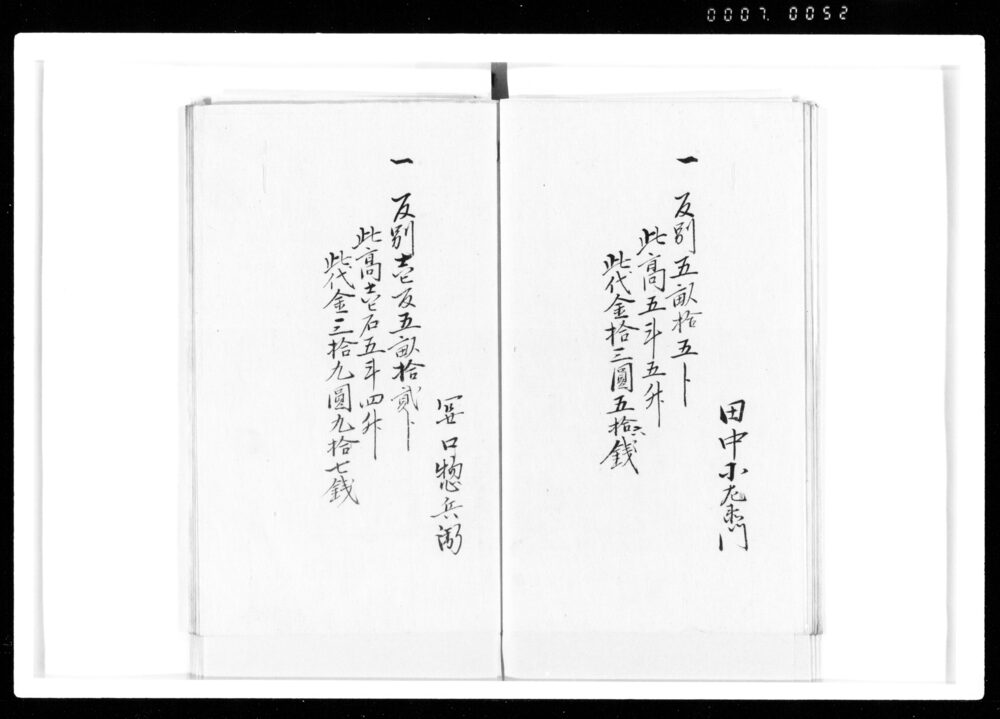 0007. 0052
田中小左衛門
一 反別五畝拾五ト
此高五斗五升
此代金拾三圓五拾六銭
口惣兵衛
一 反別壱反五畝拾貳ト
此高壱石五斗四升
此代金三拾九圓九拾七銭